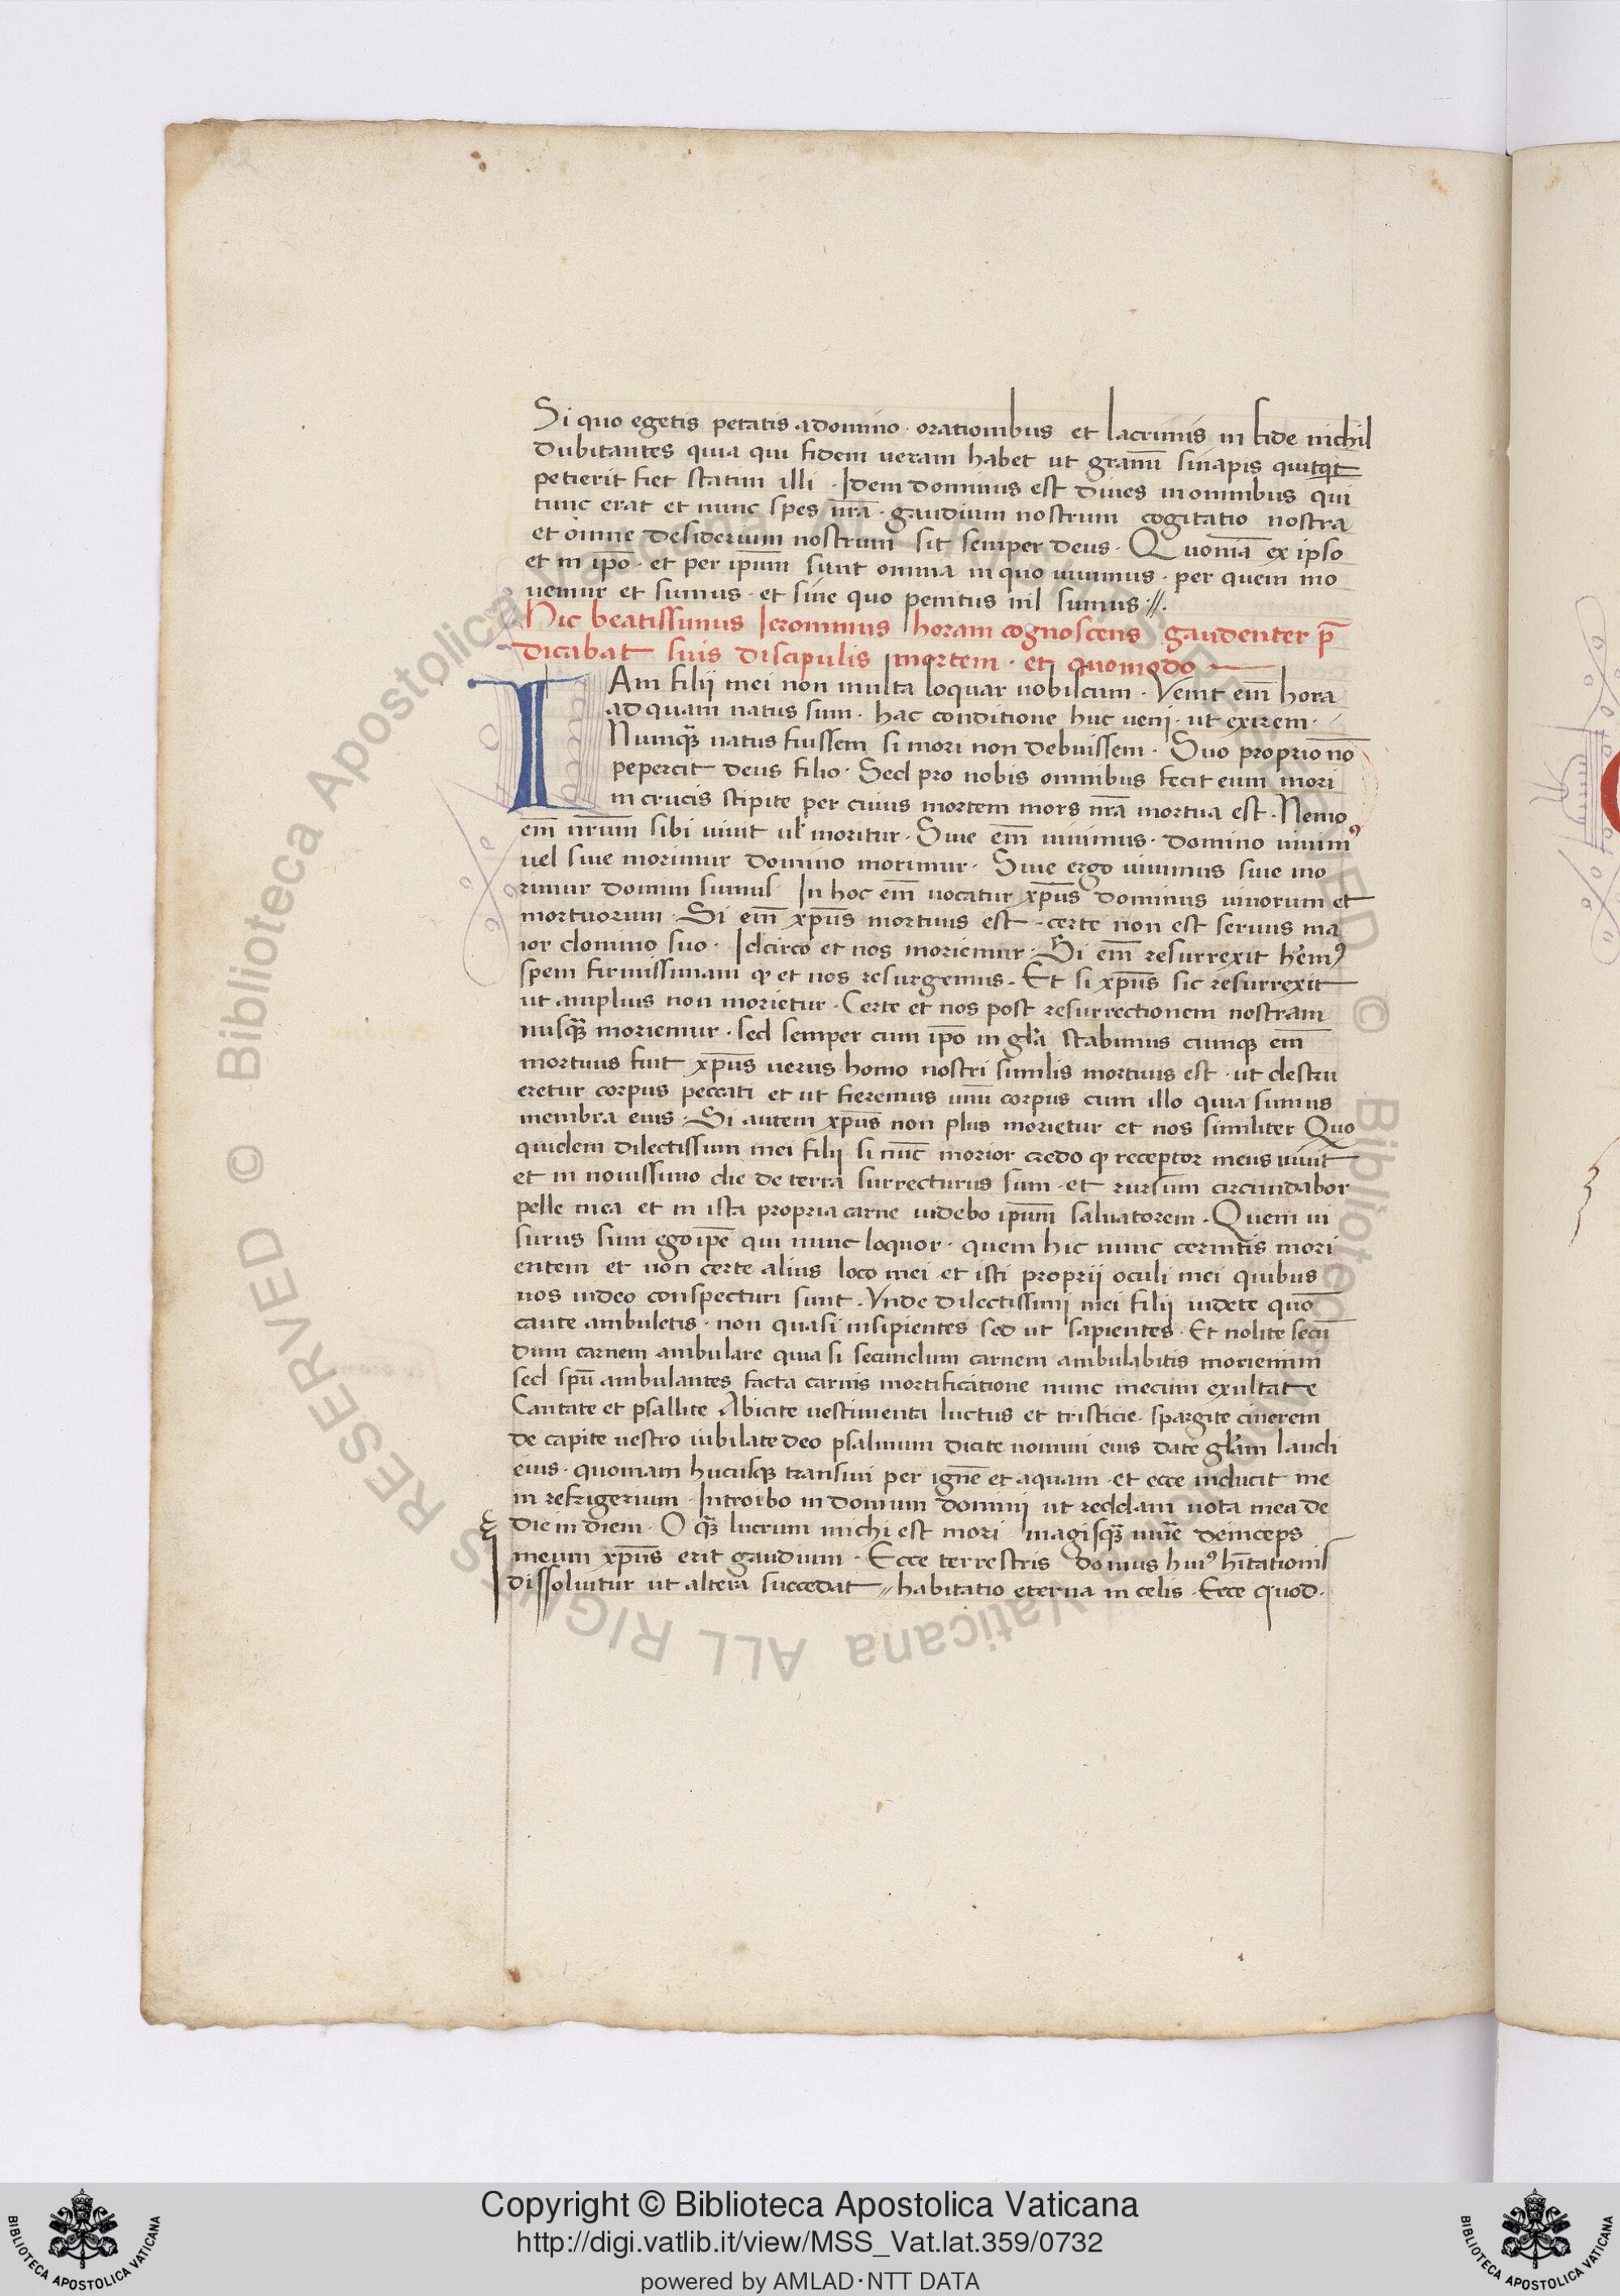 Si quo egetis petatis a domino · orationibus et lacrimis in fide nichil
dubitantes quia qui fidem ueram habet ut granũ sinapis quitqͥt
petierit fiet statim illi · Idem dominus est diues in omnibus qui
tunc erat et nunc spes nr̃a · gaudium nostrum cogitatio nostra
et omne desiderium nostrum sit semper deus · Quoniã ex ipso
et in ip̃o · et per ip̃um sunt omnia in quo uiuimus · per quem mo
uemur et sumus · et sine quo penitus nil sumus ·//.
Hic beatissimus Ieronimus horam cognoscens gaudenter p̃
dicabat suis discipulis mortem · et quomodo
IAm filij mei non multa loquar uobiscum · Venit em̃ hora
ad quam natus sum · hac conditione huc ueni · ut exirem ·
Numqꝫ natus fuissem si mori non debuissem · Suo proprio nõ
pepercit deus filio · Sed pro nobis omnibus fecit eum mori
in crucis stipite per cuius mortem mors nr̃a mortua est · Nemo
em̃ nr̃um sibi uiuit ul̃ moritur · Siue em̃ uiuimus · domino uiuimꝰ
uel siue morimur domino morimur · Siue ergo uiuimus siue mo
rimur domini sumus · In hoc em̃ uocatur xp̃us dominus uiuorum et
mortuorum · Si em̃ xp̃us mortuus est · certe non est seruus ma
ior domino suo · Idcirco et nos moriemur · Si em̃ resurrexit hem̃ꝰ
spem firmissimam ꝙ et nos resurgemus · Et si xp̃us sic resurrexit
ut amplius non morietur · Certe et nos post resurrectionem nostram
nusqꝫ moriemur · sed semper cum ip̃o in glã stabimus cumqꝫ em̃
mortuus fuit xp̃us uerus homo nostri similis mortuus est · ut destru
eretur corpus peccati et ut fieremus unũ corpus cum illo quia sumus
membra eius · Si autem xp̃us non plus morietur et nos similiter Quo
quidem dilectissimi mei filij si nũc morior credo ꝙ receptor meus uiuit
et in nouissimo die de terra surrecturus sum · et rursum circundabor
pelle mea et in ista propria carne uidebo ip̃um saluatorem · Quem ui
surus sum ego ip̃e qui nunc loquor · quem hic nunc cernitis mori
entem et non certe alius loco mei et isti proprij oculi mei quibus
uos uideo conspecturi sunt · Vnde dilectissimi mei filij uidete quõ
caute ambuletis · non quasi insipientes sed ut sapientes · Et nolite secũ
dum carnem ambulare quia si secundum carnem ambulabitis moriemini
sed spũ ambulantes facta carnis mortificatione nunc mecum exultate
Cantate et psallite Abicite uestimenta luctus et tristicie · spargite cinerem
de capite uestro iubilate deo psalmum dicite nomini eius date glãm laudi
eius · quoniam hucusqꝫ transiui per ignẽ et aquam · et ecce inducit me
in refrigerium · Introibo in domum domini ut reddam uota mea de
die in diem · O qꝫ lucrum michi est mori magisqꝫ uiuẽ deinceps
meum xp̃us erit gaudium · Ecce terrestris domus huiꝰ hĩtationis
dissoluitur ut altera succedat // habitatio eterna in celis · Ecce quod ·
Copyright © Biblioteca Apostolica Vaticana
http://digi.vatlib.it/view/MSS_Vat.lat.359/0732
powered by AMLAD·NTT DATA